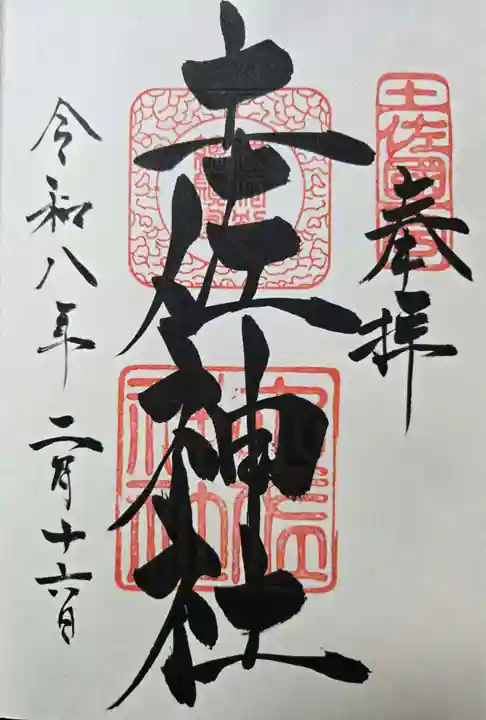 奉拝
土佐神社
令和八年二月十六日
土佐神社